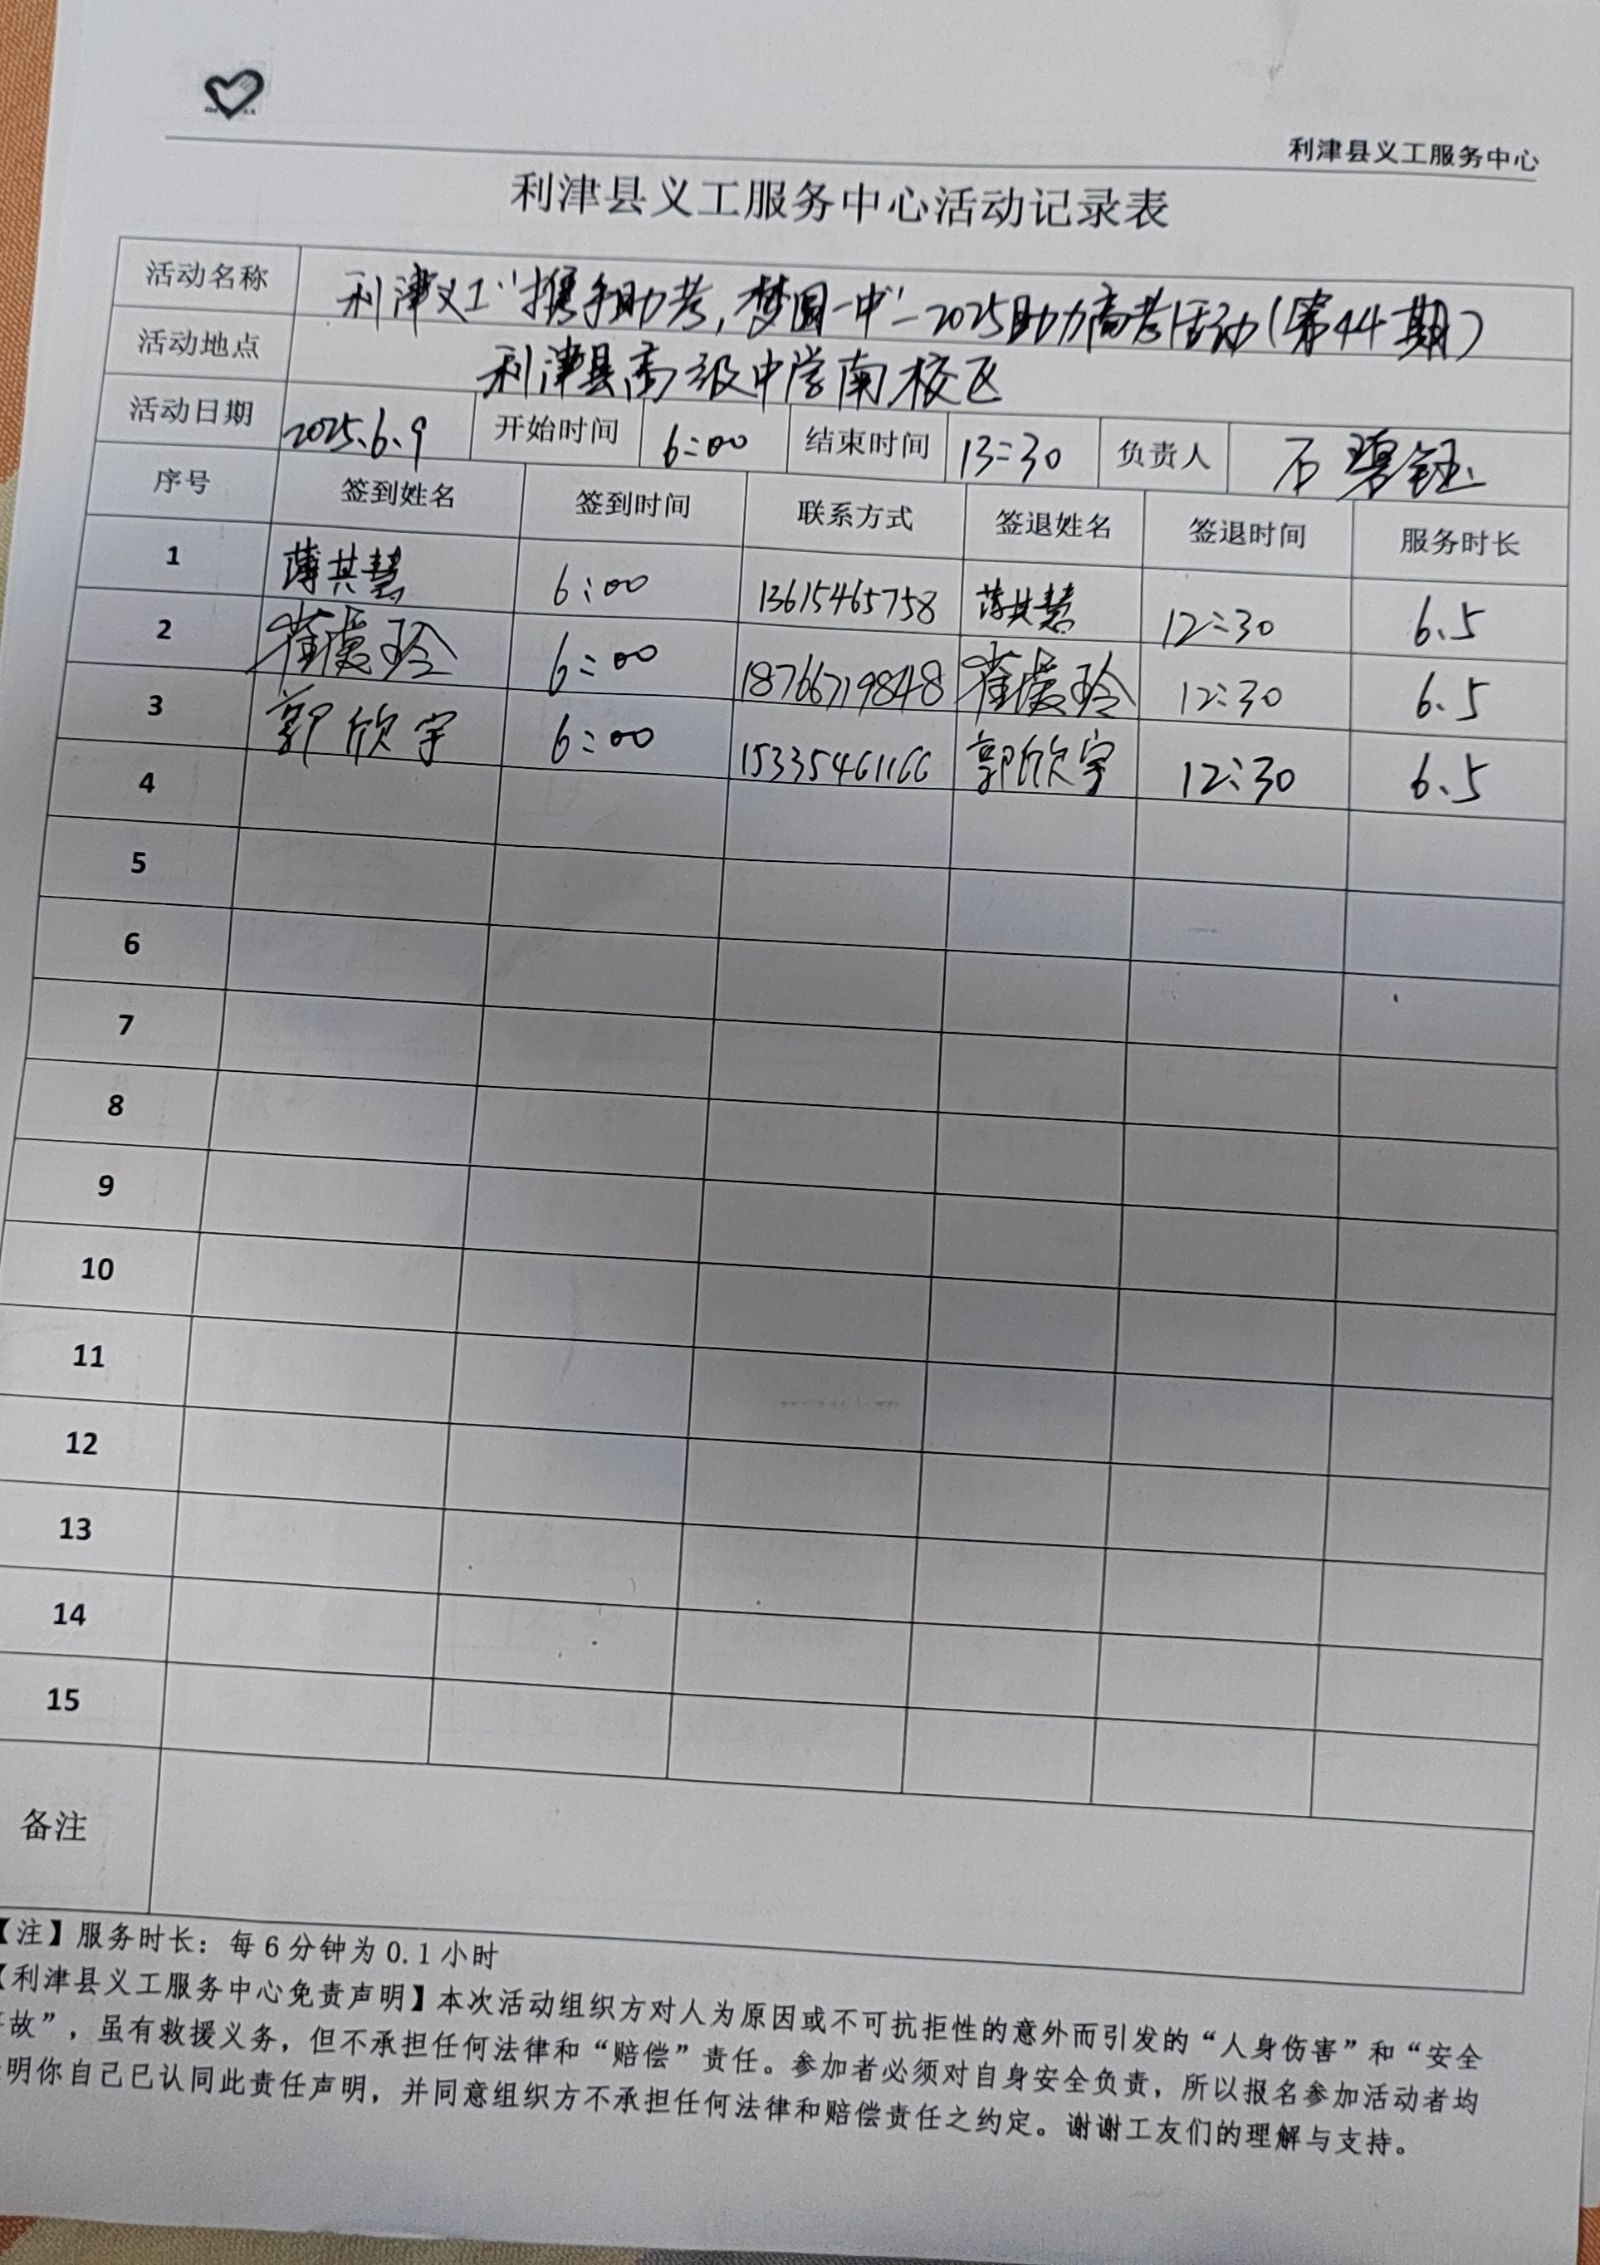 利津县义工服务中心
利津县义工服务中心活动记录表
活动名称 利津义工"携手助考,梦圆一中"-2025助力高考活动(第44期)
活动地点 利津县高级中学南校区
活动日期 2025.6.9 开始时间 6:00 结束时间 13:30 负责人 石碧钰
序号 签到姓名 签到时间 联系方式 签退姓名 签退时间 服务时长
1 薄其慧 6:00 13615465758 薄其慧 12:30 6.5
2 崔爱玲 6:00 18766719848 崔爱玲 12:30 6.5
3 郭欣宇 6:00 15335461166 郭欣宇 12:30 6.5
4
5
6
7
8
9
10
11
12
13
14
15
备注
【注】服务时长：每6分钟为0.1小时
【利津县义工服务中心免责声明】本次活动组织方对人为原因或不可抗拒性的意外而引发的“人身伤害”和“安全
故”，虽有救援义务，但不承担任何法律和“赔偿”责任。参加者必须对自身安全负责，所以报名参加活动者均
明你自己已认同此责任声明，并同意组织方不承担任何法律和赔偿责任之约定。谢谢工友们的理解与支持。